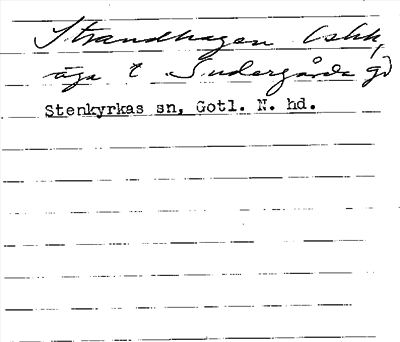 Strandhagen
äga t Sudergårda gd
Stenkyrkas sn, Gotl. N. hd.